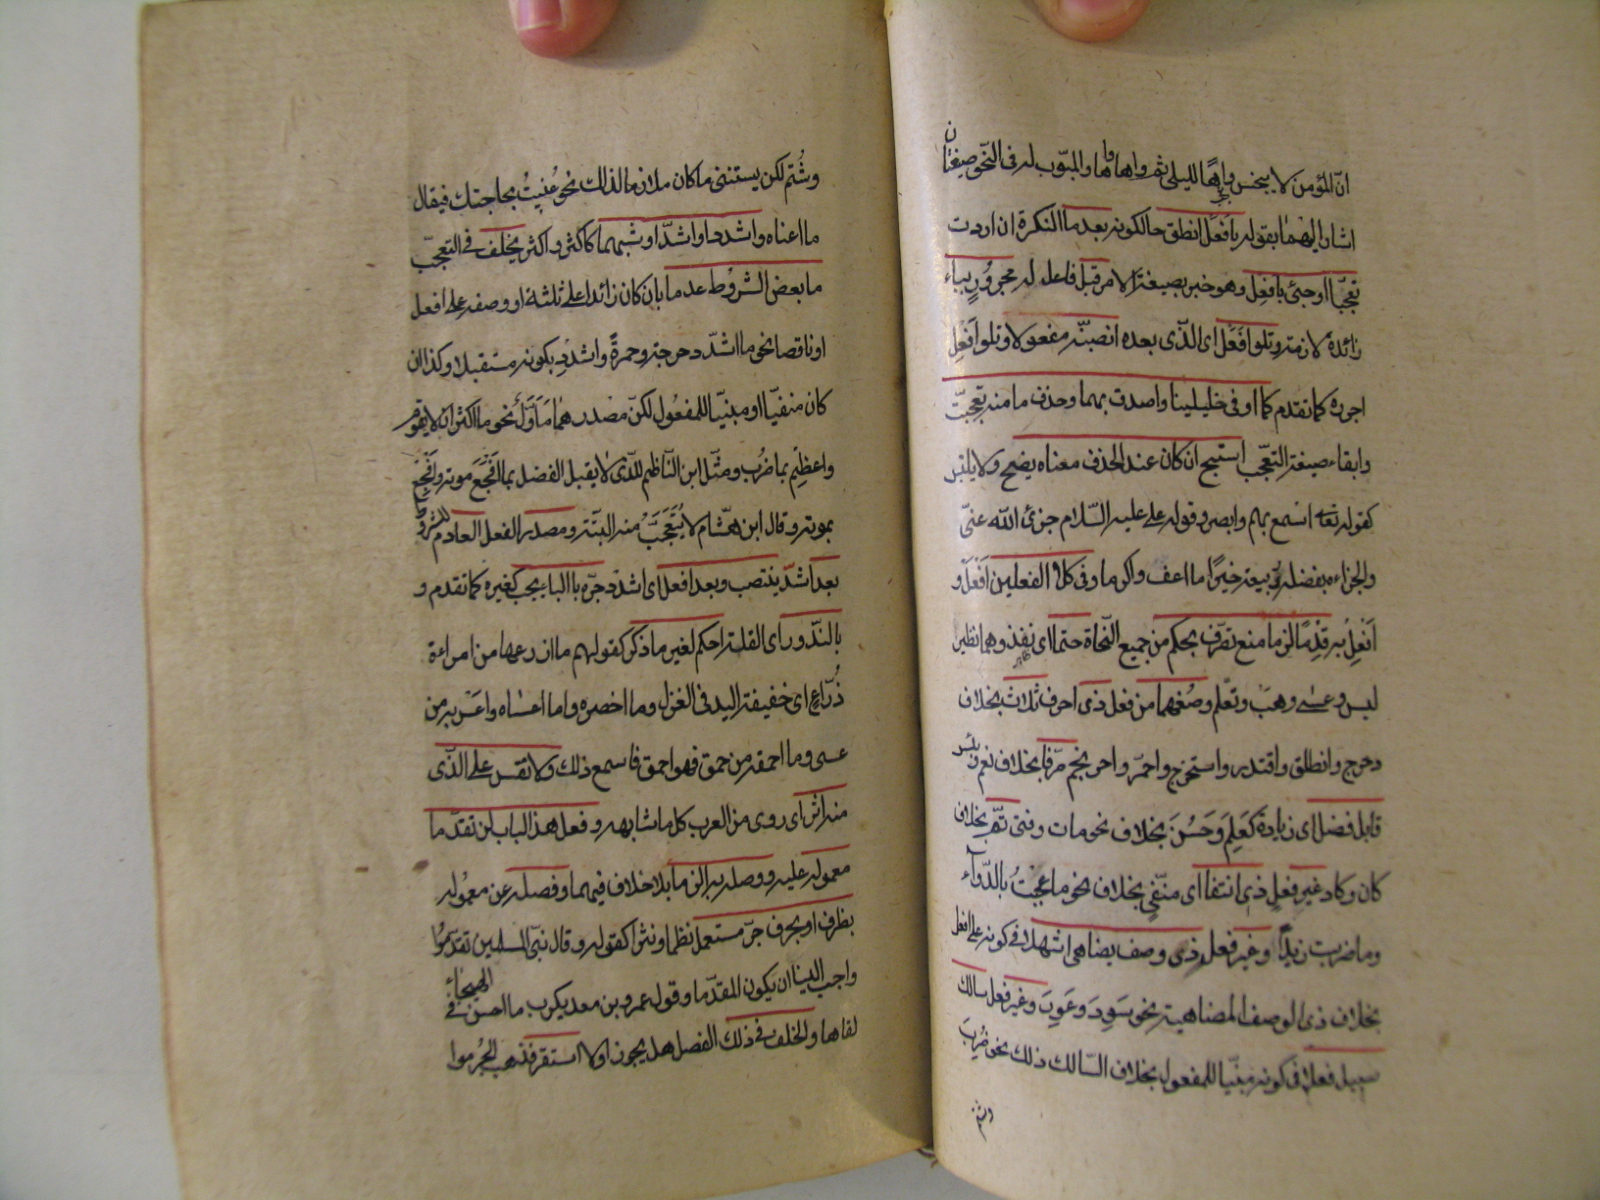 انّ المؤمن لا ينجس واهًا لليلى ثم واها واها والمبوّب له فى النّحو صيغتان
اشار اليهما بقوله بافعَلَ انطق حالكونه بعد ما النكرة ان اردت
تعجّبا اوجئ بافعِل وهو خبر بصيغة الامر قبل فاعل له مجرورٍ بباء
زائدة لازمة وتلو افعَلَ اى الّذى بعده انصبنّه مفعولا وتلو افعِل
اجرره كما تقدم كما اوفى خليلينا واصدق بهما وحذف ما منه تعجبتَ
وابقاء صيغة التعجّب استبح ان كان عند الحذف معناه يضح ولا يلتبس
كقوله تعالى اسمع بهم وابصر وقوله على عليه السّلام جزى الله عنّى
والجزاء بفضله ربيعة خيرًا ما اعف واكرما وفى كلا الفعلين افعَلَ و
افعِل به قِدْمًا لزما منع تصرّف بحكم من جميع النّحاة حتما اى نفذ وهما نظير
ليس وعسى وهَبْ وتعلّم وصُغهما من فعل ذى احرف ثلاث بخلاف
دحرج وانطلق واقتدر واستخرج واحمرّ واحرنجم صرّفا بخلاف نعم وبئس
قابل فضل اى زيادة كعَلِمَ وحَسُنَ بخلاف نحو مات وفنى تمّ بخلاف
كان وكاد غير فعل ذى انتفا اى منفّى بخلاف نحو ما عجتُ بالدّواء
وما ضربت زيدًا وغير فعل ذى وصف يضاهى اشهلا فى كونه على افعل
بخلاف ذى الوصف المضاهيه نحو سَوِدَ وعَوِرَ وغير فعل سالك
سبيل فعلا فى كونه مبنيّا للمفعول بخلاف السّالك ذلك نحو ضُرِبَ
وشتم
وشُتم لكن يستثنى ما كان ملازما لذلك نحو عُنيتُ بحاجتك فيقال
ما اعناه واشدد او اشدّ او شبههما كاكثر واكثر يخلف فى التعجّب
ما بعض الشروط عدما بان كان زائدا على ثلثة او وصفه على افعل
او ناقصا نحو ما اشدّ دحرجته وحمرةً واشدِد بكونه مستقبلا وكذا ان
كان منفيّا او مبنيّا للمفعول لكنّ مصدرهما مُأوّل نحو ما اكثر ان لا يقوم
واعظِم بما ضُرب ومثّل ابن النّاظم للّذى لا يقبل الفضل بما افجَعَ موته وافجِع
بموته وقال ابن هشام لا يُتعجّبُ منه البتّة ومصدر الفعل العادم للشروط
بعد اشدّ ينتصب وبعد افعل اى اشدد جرّه بالباء يجب كغيره كما تقدم و
بالنّدور اى القلّة احكم لغير ما ذكر كقولهم ما اذرعها من امراءة
ذُرّاع اى خفيفة اليد فى الغزل وما اخصره وما اعساه واعس به من
عسى وما احمقه من حمق فهو احمق فاسمع ذلك ولا تقس على الّذى
منه اثر اى روى من العرب كل ما شابهه وفعل هذا الباب لن تقدّما
معموله عليه ووصله به الزما بلا خلاف فيهما وفصله عن معموله
بظرف او بحرف جرّ مستعمل نظما ونثرا كقوله وقال نبىّ المسلمين تقدّموا
واحبب الينا ان يكون المقدّما وقول عمرو بن معد يكرب ما احسن فى الهيجاء
لقاها والخلف فى ذلك الفصل هل يجوز اولا استقر فذهب الجُرموا